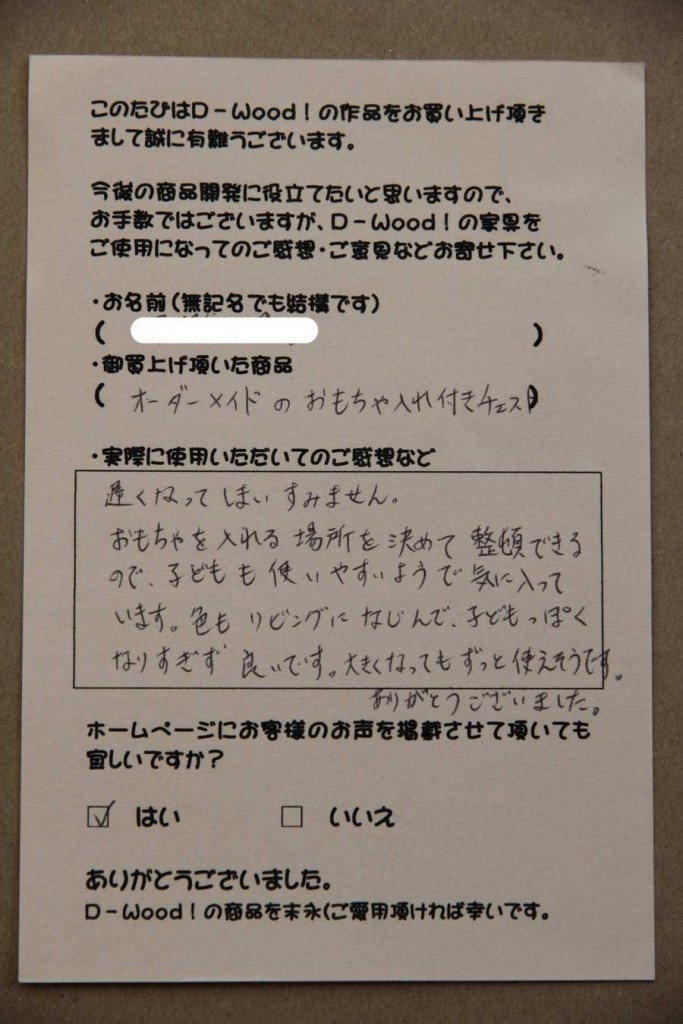 このたびはD-Wood!の作品をお買い上げ頂き
まして誠に有難うございます。
今後の商品開発に役立てたいと思いますので、
お手数ではございますが、D-Wood!の家具を
ご使用になってのご感想・ご意見などお寄せ下さい。
・お名前(無記名でも結構です)
( )
・御買上げ頂いた商品
( オーダーメイドのおもちゃ入れ付きチェスト )
・実際に使用いただいてのご感想など
遅くなってしまいすみません。
おもちゃを入れる場所を決めて整頓できる
ので、子どもも使いやすいようで気に入って
います。色もリビングになじんで、子どもっぽく
なりすぎず良いです。大きくなってもずっと使えそうです。
ありがとうございました。
ホームページにお客様のお声を掲載させて頂いても
宜しいですか?
☑ はい □ いいえ
ありがとうございました。
D-Wood!の商品を末永くご愛用頂ければ幸いです。